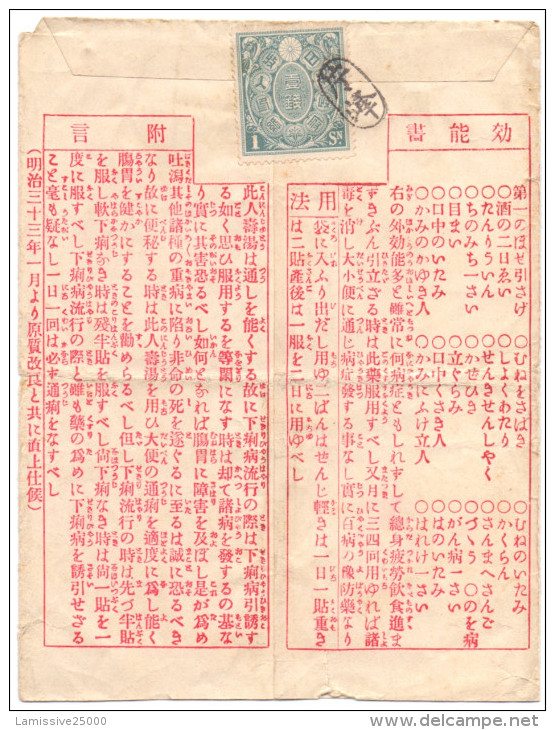 効能書
第一のぼせ引さげ ○むねをさばき ○むねのいたみ
○酒の二日ゑい ○しょくわたり ○かくらん
○たんりういん ○せんきせんしやく ○さんまへさんご
○ちのみち一さい ○かぜひき ○づゝう ○のを病
○目まい ○立ぐらみ ○がん病一さい
○口中のいたみ ○口中くさき人 ○はのいたみ
○かみのかゆき人 ○かみにふけ立人 ○はれけ一さい
右の外効能多しと雖常に何病症ともしれずして總身疲勞飲食進ま
ずきぶん引立ざる時は此藥服用すべし又月に三四回用ゆれば諸
毒を消し大小便に通じ病症發する事なし實に百病の豫防藥なり
用法
袋に入ふり出だし用ゆ二ばんはせんじ輕きは一日一貼重き
は二貼產後は一服を二日に用ゆべし
附言
此人壽湯は通しを能くする故に下痢病流行の際は下痢病引誘す
る如く思ひ服用するを等閑になす時は却て諸病を發するの基な
り實に其害恐るべし如何となれば腸胃に障害を及ぼし是が爲め
吐瀉其他諸種の重病に陷り非命の死を遂ぐるに至るは誠に恐るべき
なり故に便秘する時は此人壽湯を用ひ大便の通痢を適度に爲し能く
腸胃を健かにすることを勸めらるべし但し下痢流行の時は先づ半貼
を服し軟下痢かき時は殘半貼を服すべし尙下痢なき時は尙一貼を一
度に服すべし下痢病流行の際と雖も藥の爲めに下痢病を誘引せざる
こと毫も疑なし日一回は必ず通痢をなすべし
(明治三十三年一月より原質改良と共に直上仕候)
壹錢
1 SN
Lamissive25000
delcampe.net